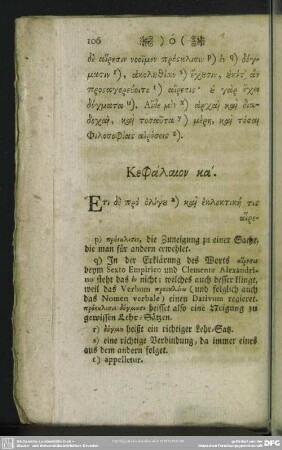 106 ( ό (
δὲ αἵρεσιν νοοῖμεν πρόσκλισιν p) ἐν q) δόγ-
μασιν r), ἀκολουθίαν s) ἔχουσιν, ἐκέτ᾽ ἂν
προσαγορεύοιτο t) αἵρεσις· ἐ γὰρ ἔχει
δόγματα u). Αἵδε μὲν x) ἀρχαὶ καὶ δια-
δοχαὶ, καὶ τοσαῦτα y) μέρη, καὶ τόσαι
Φιλοσοφίας αἱρέσεις z).
Κεφάλαιον κα΄.
Ἔτι δὲ πρὸ ὀλίγου a) καὶ ἐκλεκτική τις
αἵρε-
p) πρόσκλισις, die Zuneigung zu einer Sache,
die man für andern erwehlet.
q) In der Erklärung des Worts αἵρεσις
beym Sexto Empirico und Clemente Alexandri-
no steht das ἐν nicht; welches auch besser klingt,
weil das Verbum προσκλίνω (und folglich auch
das Nomen verbale) einen Dativum regieret.
πρόσκλισις δόγμασι heisset also eine Neigung zu
gewissen Lehr-Sätzen.
r) δόγμα heißt ein richtiger Lehr-Satz.
s) eine richtige Verbindung, da immer eines
aus dem andern folget.
t) appelletur.
DFG